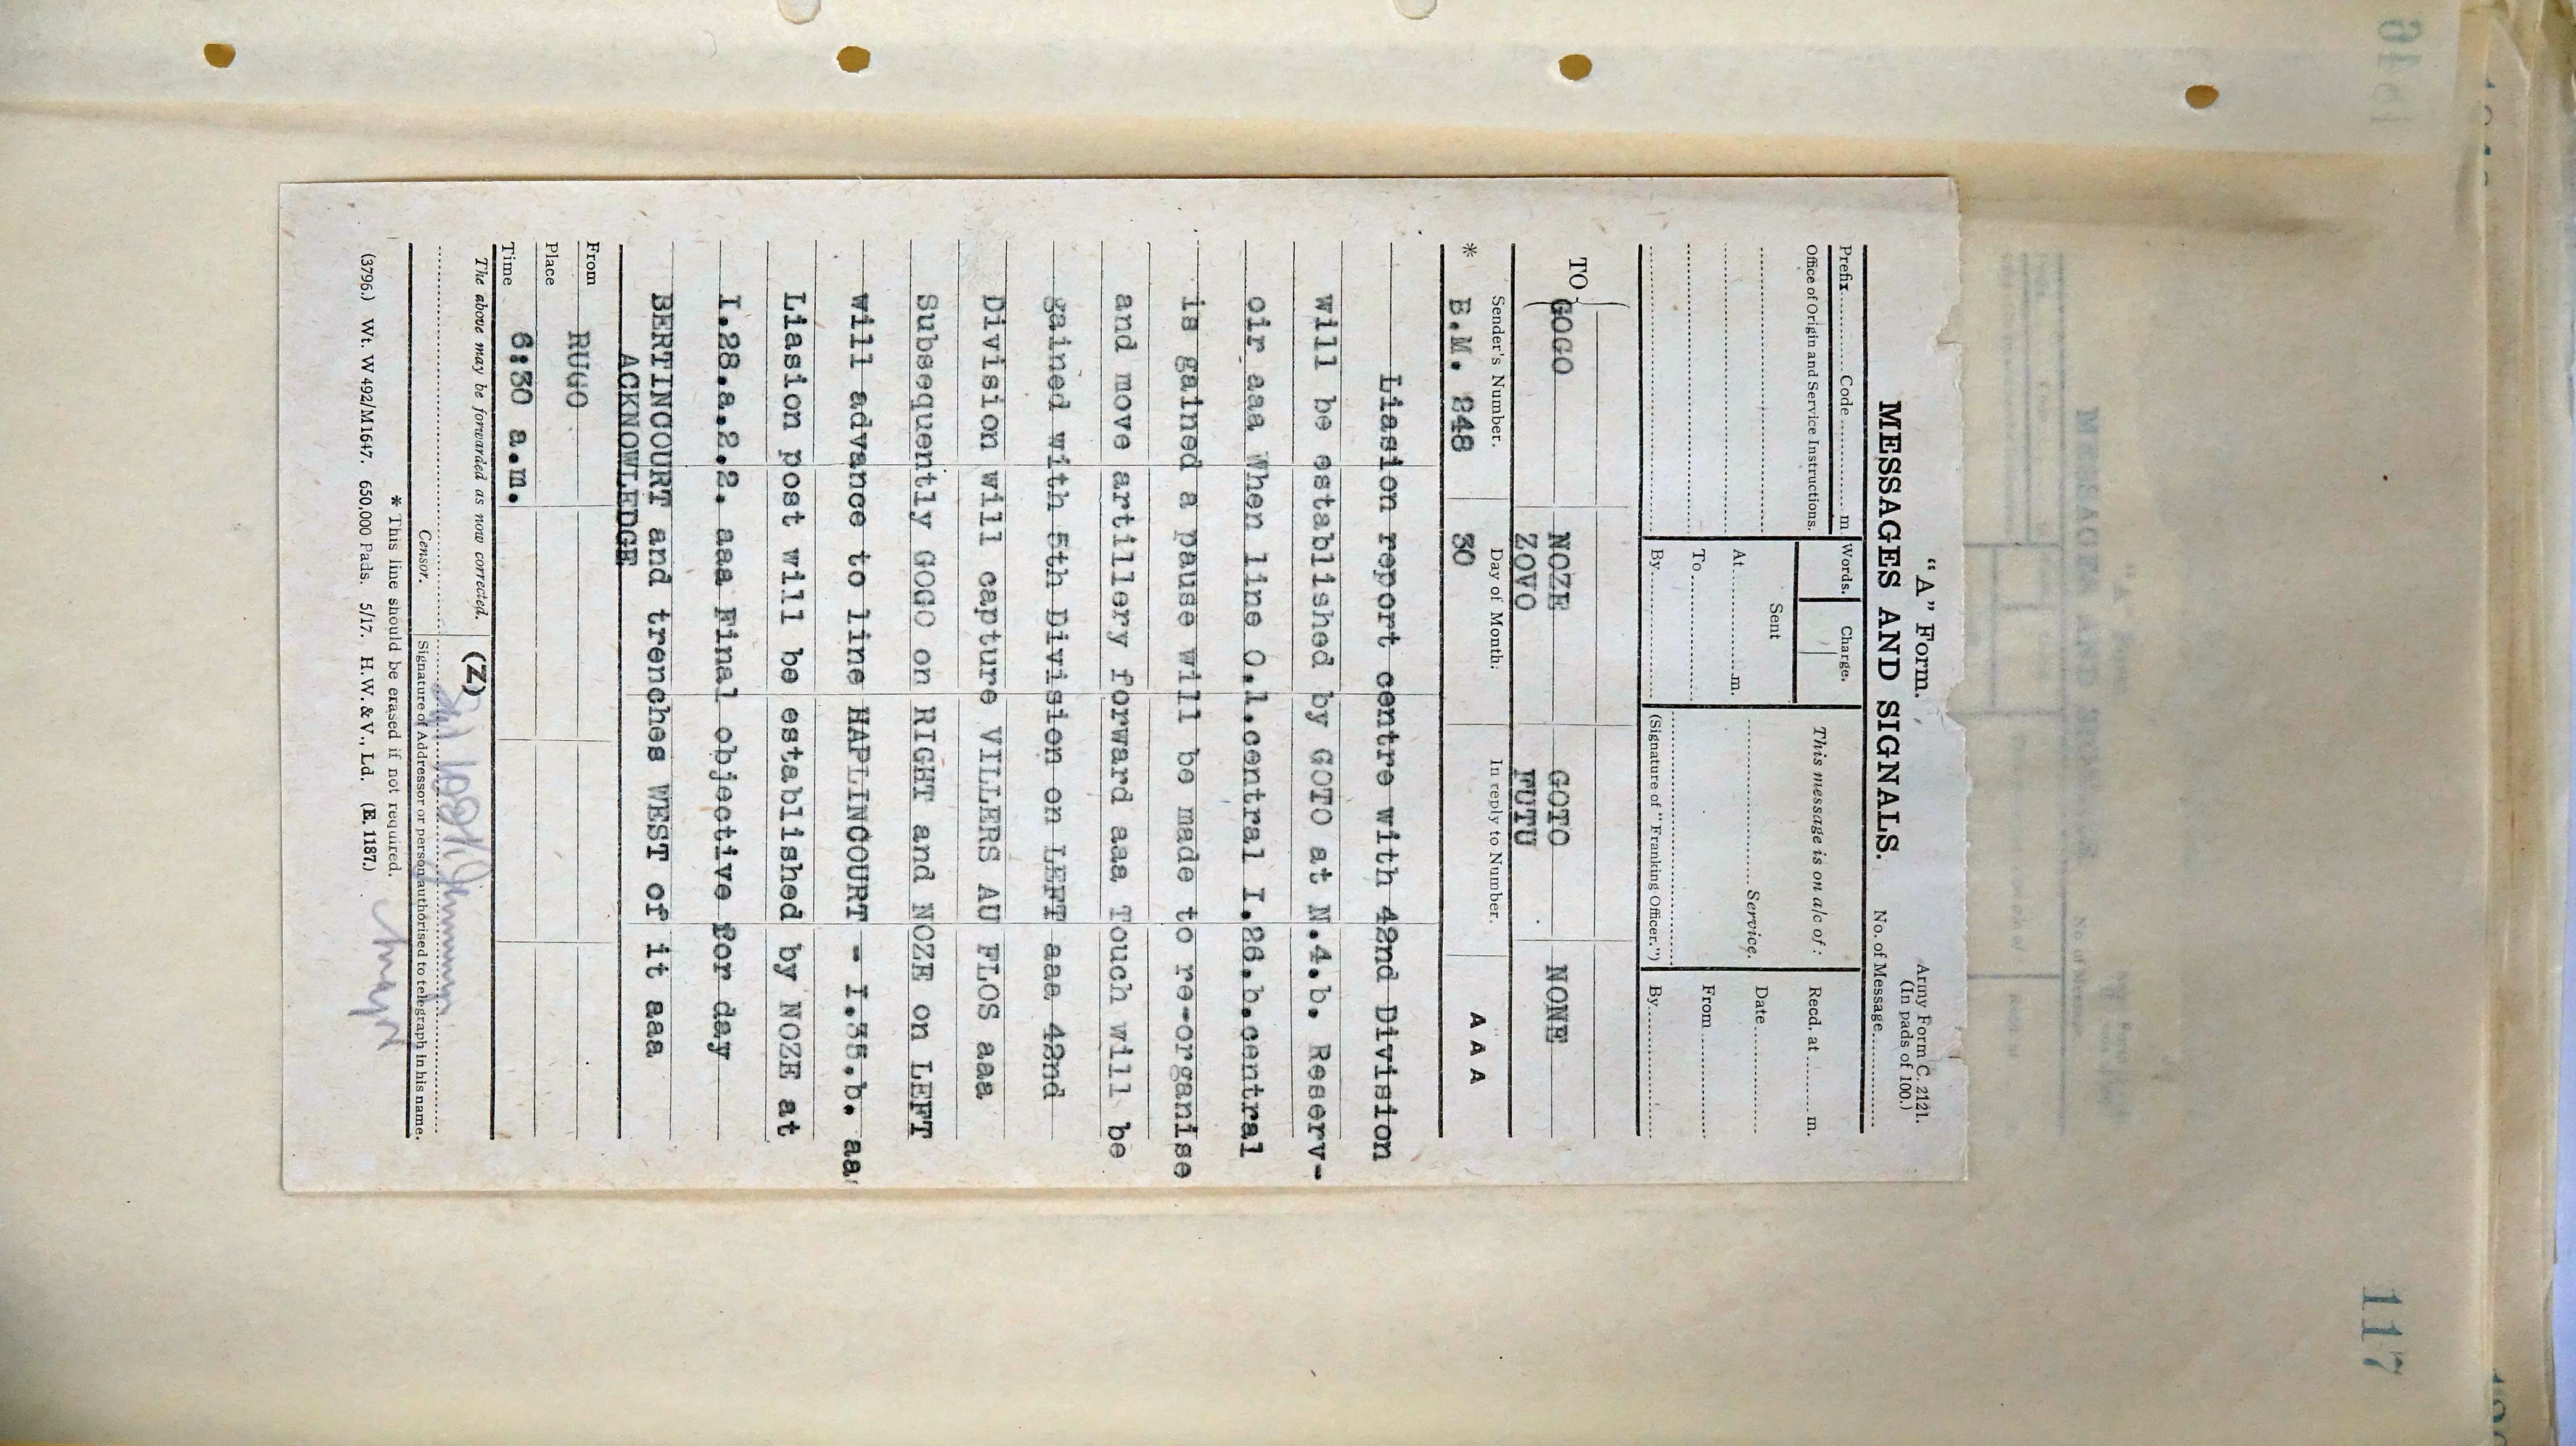 "A" Form.
Army Form C. 2121.
(In pads of 100.)
MESSAGES AND SIGNALS.
No. of Message
Prefix Code m
Words. Charge.
This message is on a/c of:
Recd. at m.
Office of Origin and Service Instructions.
Sent
At m.
Service.
Date
To
From
By
(Signature of "Franking Officer.")
By
TO
GOGO NOZE GOTO NONE
ZOVO FUTU
Sender's Number. Day of Month. In reply to Number.
* B.M. 248 30 AAA
Liasion report centre with 42nd Division
will be established by GOTO at N.4.b. Reserv-
oir aaa When line O.1.central I.26.b.central
is gained a pause will be made to re-organise
and move artillery forward aaa Touch will be
gained with 5th Division on LEFT aaa 42nd
Division will capture VILLERS AU FLOS aaa
Subsequently GOGO on RIGHT and NOZE on LEFT
will advance to line HAPLINCOURT - I.35.b. aaa
Liasion post will be established by NOZE at
I.28.a.2.2. aaa Final objective for day
BERTINCOURT and trenches WEST of it aaa
ACKNOWLEDGE
From RUGO
Place
Time 6:30 a.m.
The above may be forwarded as now corrected. (Z)
Censor. Signature of Addressor or person authorised to telegraph in his name.
* This line should be erased if not required.
(3796.) Wt. W 492/M1647. 650,000 Pads. 5/17. H.W. & V., Ld. (E. 1187.)
117